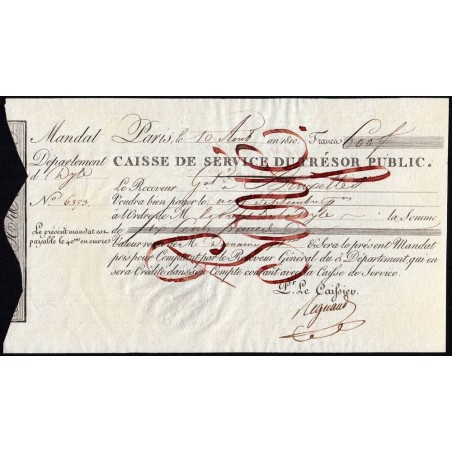 Mandat Paris, le 10 Août an 1810. Francs 600 f
Département CAISSE DE SERVICE DU TRÉSOR PUBLIC.
d' Dyle Le Receveur Gal à Bruxelles
No. 6353. Voudra bien payer le vingt Septembre
à l'Ordre de la Somme
Le présent mandat est de Six Cents francs
payable le 40me en cuivre Valeur reçue de M. & Sera le présent Mandat
pris pour Comptant par le Receveur Général du dt. Département qui en
sera Crédité dans son Compte courant avec la Caisse de Service.
Pr. Le Caissier
Regnaud